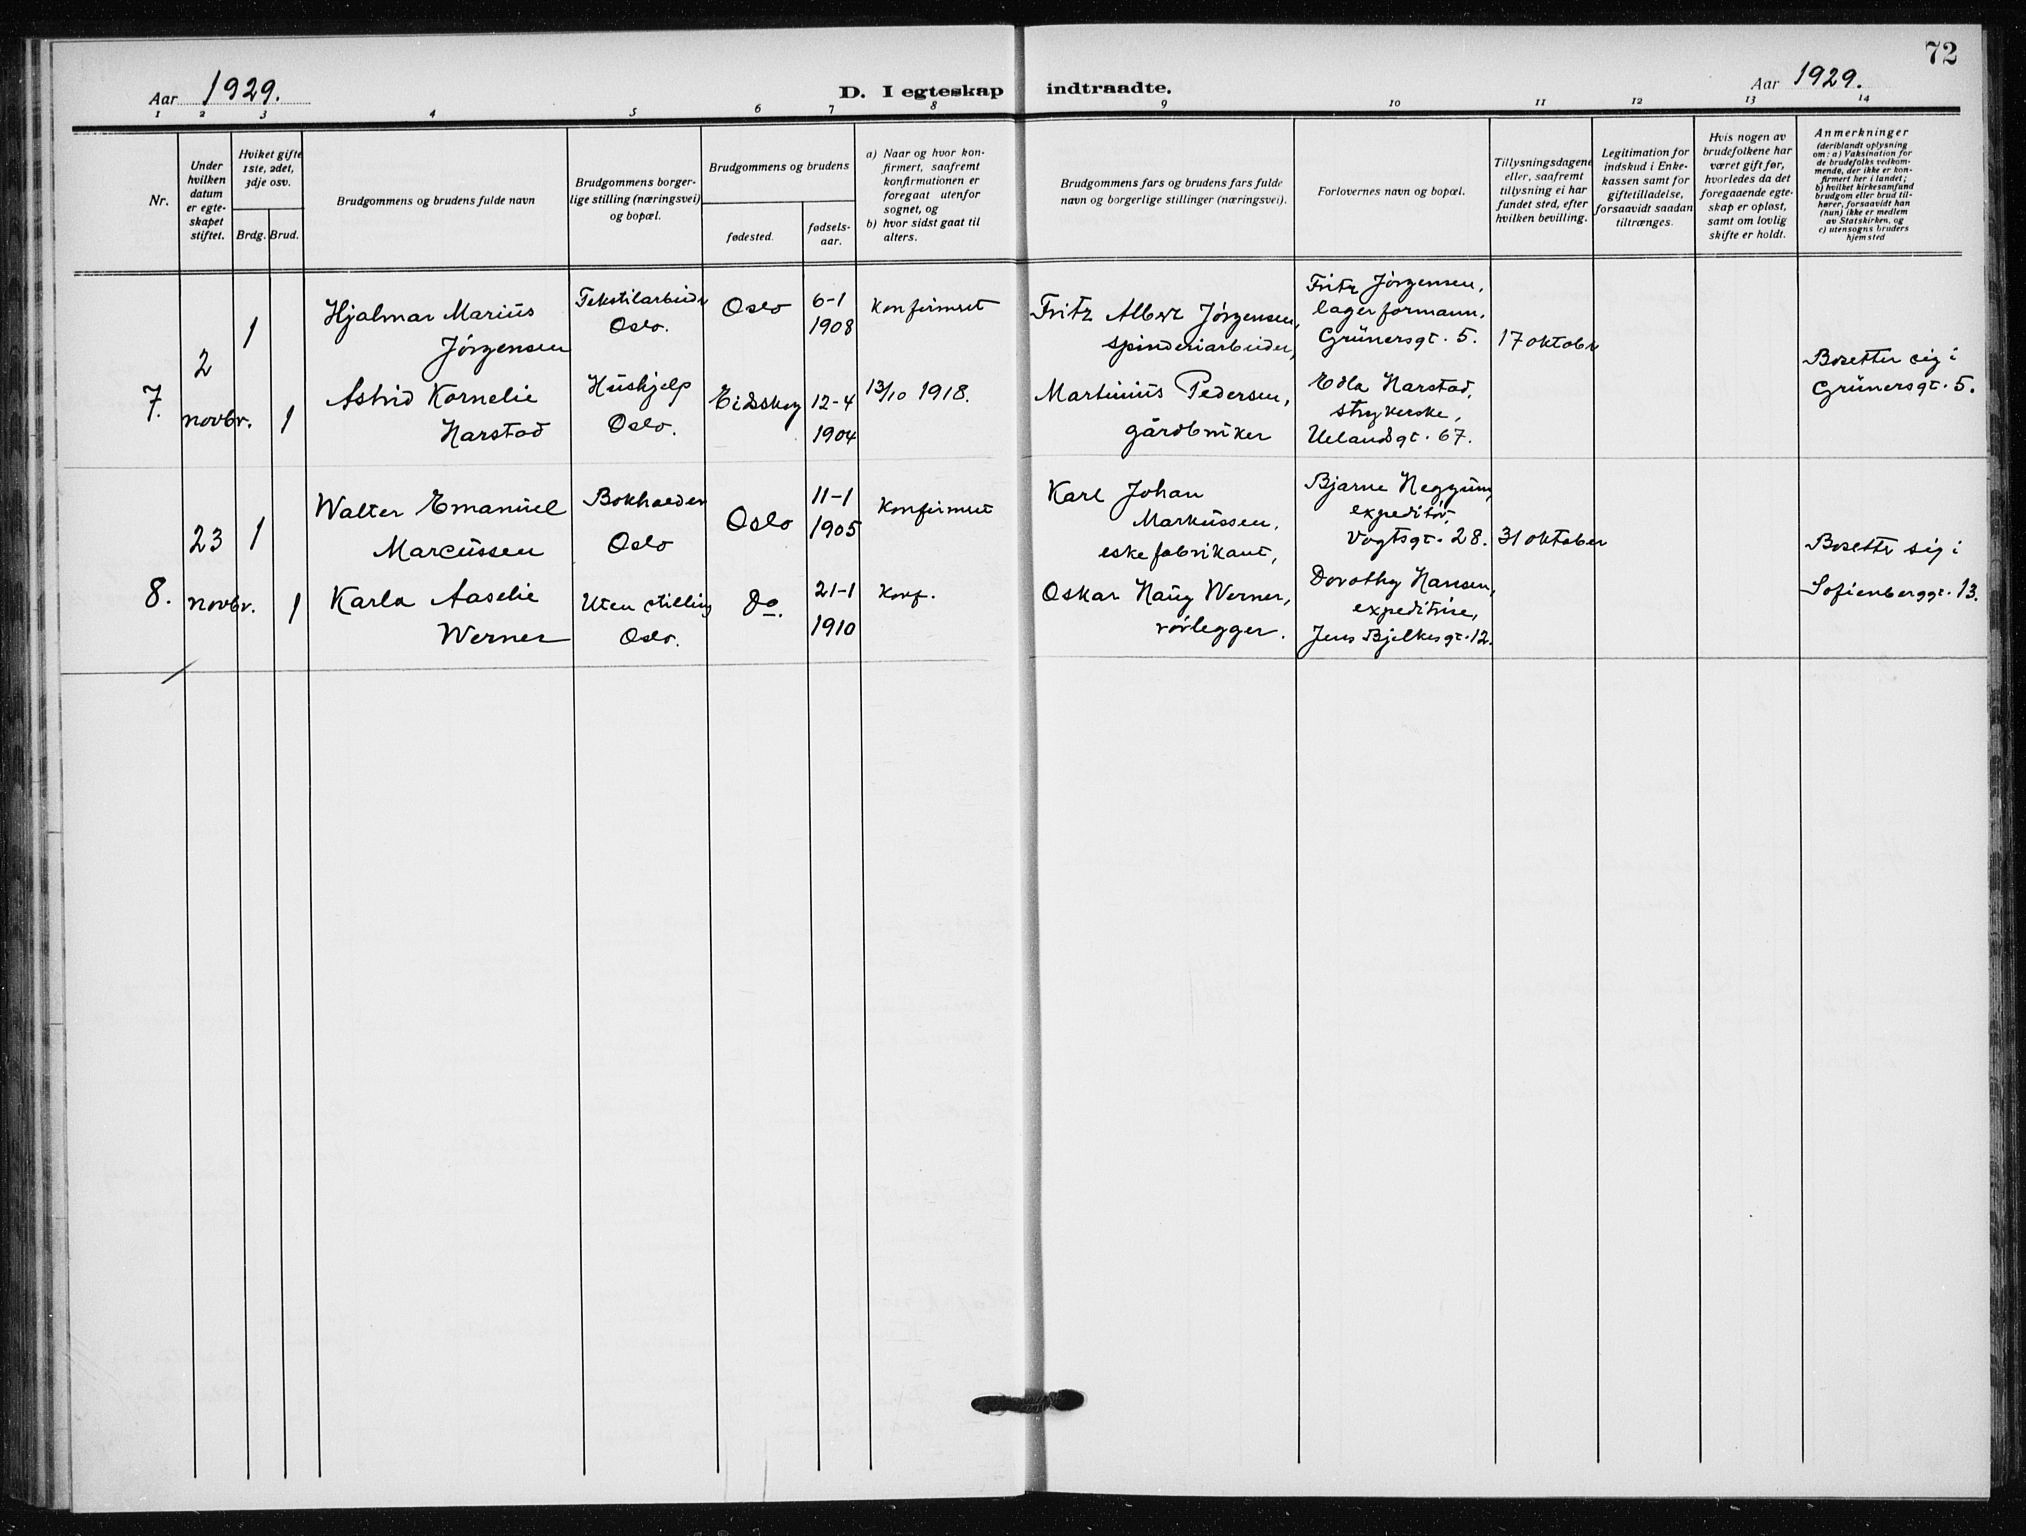 72
Aar 1929.
D. I egteskap indtraadte.
Aar 1929.
1 2 3 4 5 6 7 8 9 10 11 12 13 14
Nr.
Under
hvilken
datum
er egte-
skapet
stiftet.
Hviket gifte
1ste, 2det,
3dje osv.
Brdg. Brud.
Brudgommens og brudens fulde navn
Brudgommens borger-
lige stilling (næringsvei)
og bopæl.
Brudgommens og brudens
fødested.
fødsels-
aar.
a) Naar og hvor kon-
firmert, saafremt
konfirmationen er
foregaat utenfor
sognet, og
b) hvor sidst gaat til
alters.
Brudgommens fars og brudens fars fulde
navn og borgerlige stillinger (næringsvei).
Forlovernes navn og bopæl.
Tillysningsdagene
eller, saafremt
tillysning ei har
fundet sted, efter
hvilken bevilling.
Legitimation for
indskud i Enke-
kassen samt for
giftetilladelse,
forsaavidt saadan
tiltrænges.
Hvis nogen av
brudefolkene har
været gift før,
hvorledes da det
foregaaende egte-
skap er opløst,
samt om lovlig
skifte er holdt.
Anmerkninger
(deriblandt oplysning
om: a) Vaksination for
de brudefolks vedkom-
mende, der ikke er kon-
firmert her i landet;
b) hvilket kirkesamfund
brudgom eller brud til-
hører, forsaavidt han
(hun) ikke er medlem
av Statskirken, og
c) utensogns bruders
hjemsted
7.
2
novbr.
1
Hjalmar Marius
Jörgensen
Tekstilarbeider
Oslo.
Oslo
6-1
1908
Konfirmert
Fritz Albert Jörgensen,
spinderiarbeider,
Fritz Jörgensen,
lagerformann,
Grünersgt. 5.
17 oktobr
Bosetter sig i
Grünersgt. 5.
1
Astrid Kornelie
Harstad
Hushjelp
Oslo.
Eidskog
12-4
1904
13/10 1918.
Martinius Pedersen,
gårdbruker
Edla Harstad,
strykerske,
Uelandsgt. 67.
8.
23
novbr.
1
Walter Emanuel
Marcussen
Bokholder
Oslo
Oslo
11-1
1905
Konfirmert
Karl Johan
Markussen,
eskefabrikant,
Bjarne
expeditör,
Vogtsgt. 28.
31 oktober
Bosetter sig i
Sofienberggt. 13.
1
Karla Aaselie
Werner
Uten stilling
Oslo.
Do.
21-1
1910
Konf.
Oskar Haug Werner,
rörlegger.
Dorothy Hansen,
expeditrise,
Jens Bjelkesgt. 12.